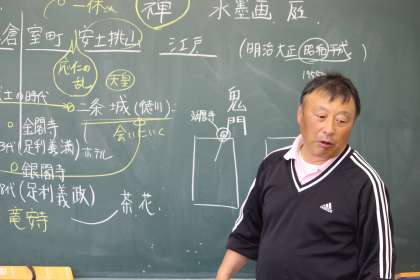 一休
禅
水墨画 庭
倉 室町 安土桃山 江戸 (明治大正 昭和 平成)
応仁の乱
天皇
士の時代
二条城 (徳川)
会いにいく
鬼門
金閣寺
3代(足利義満) ホテル
銀閣寺
8代(足利義政)
茶 花
竜安寺
adidas